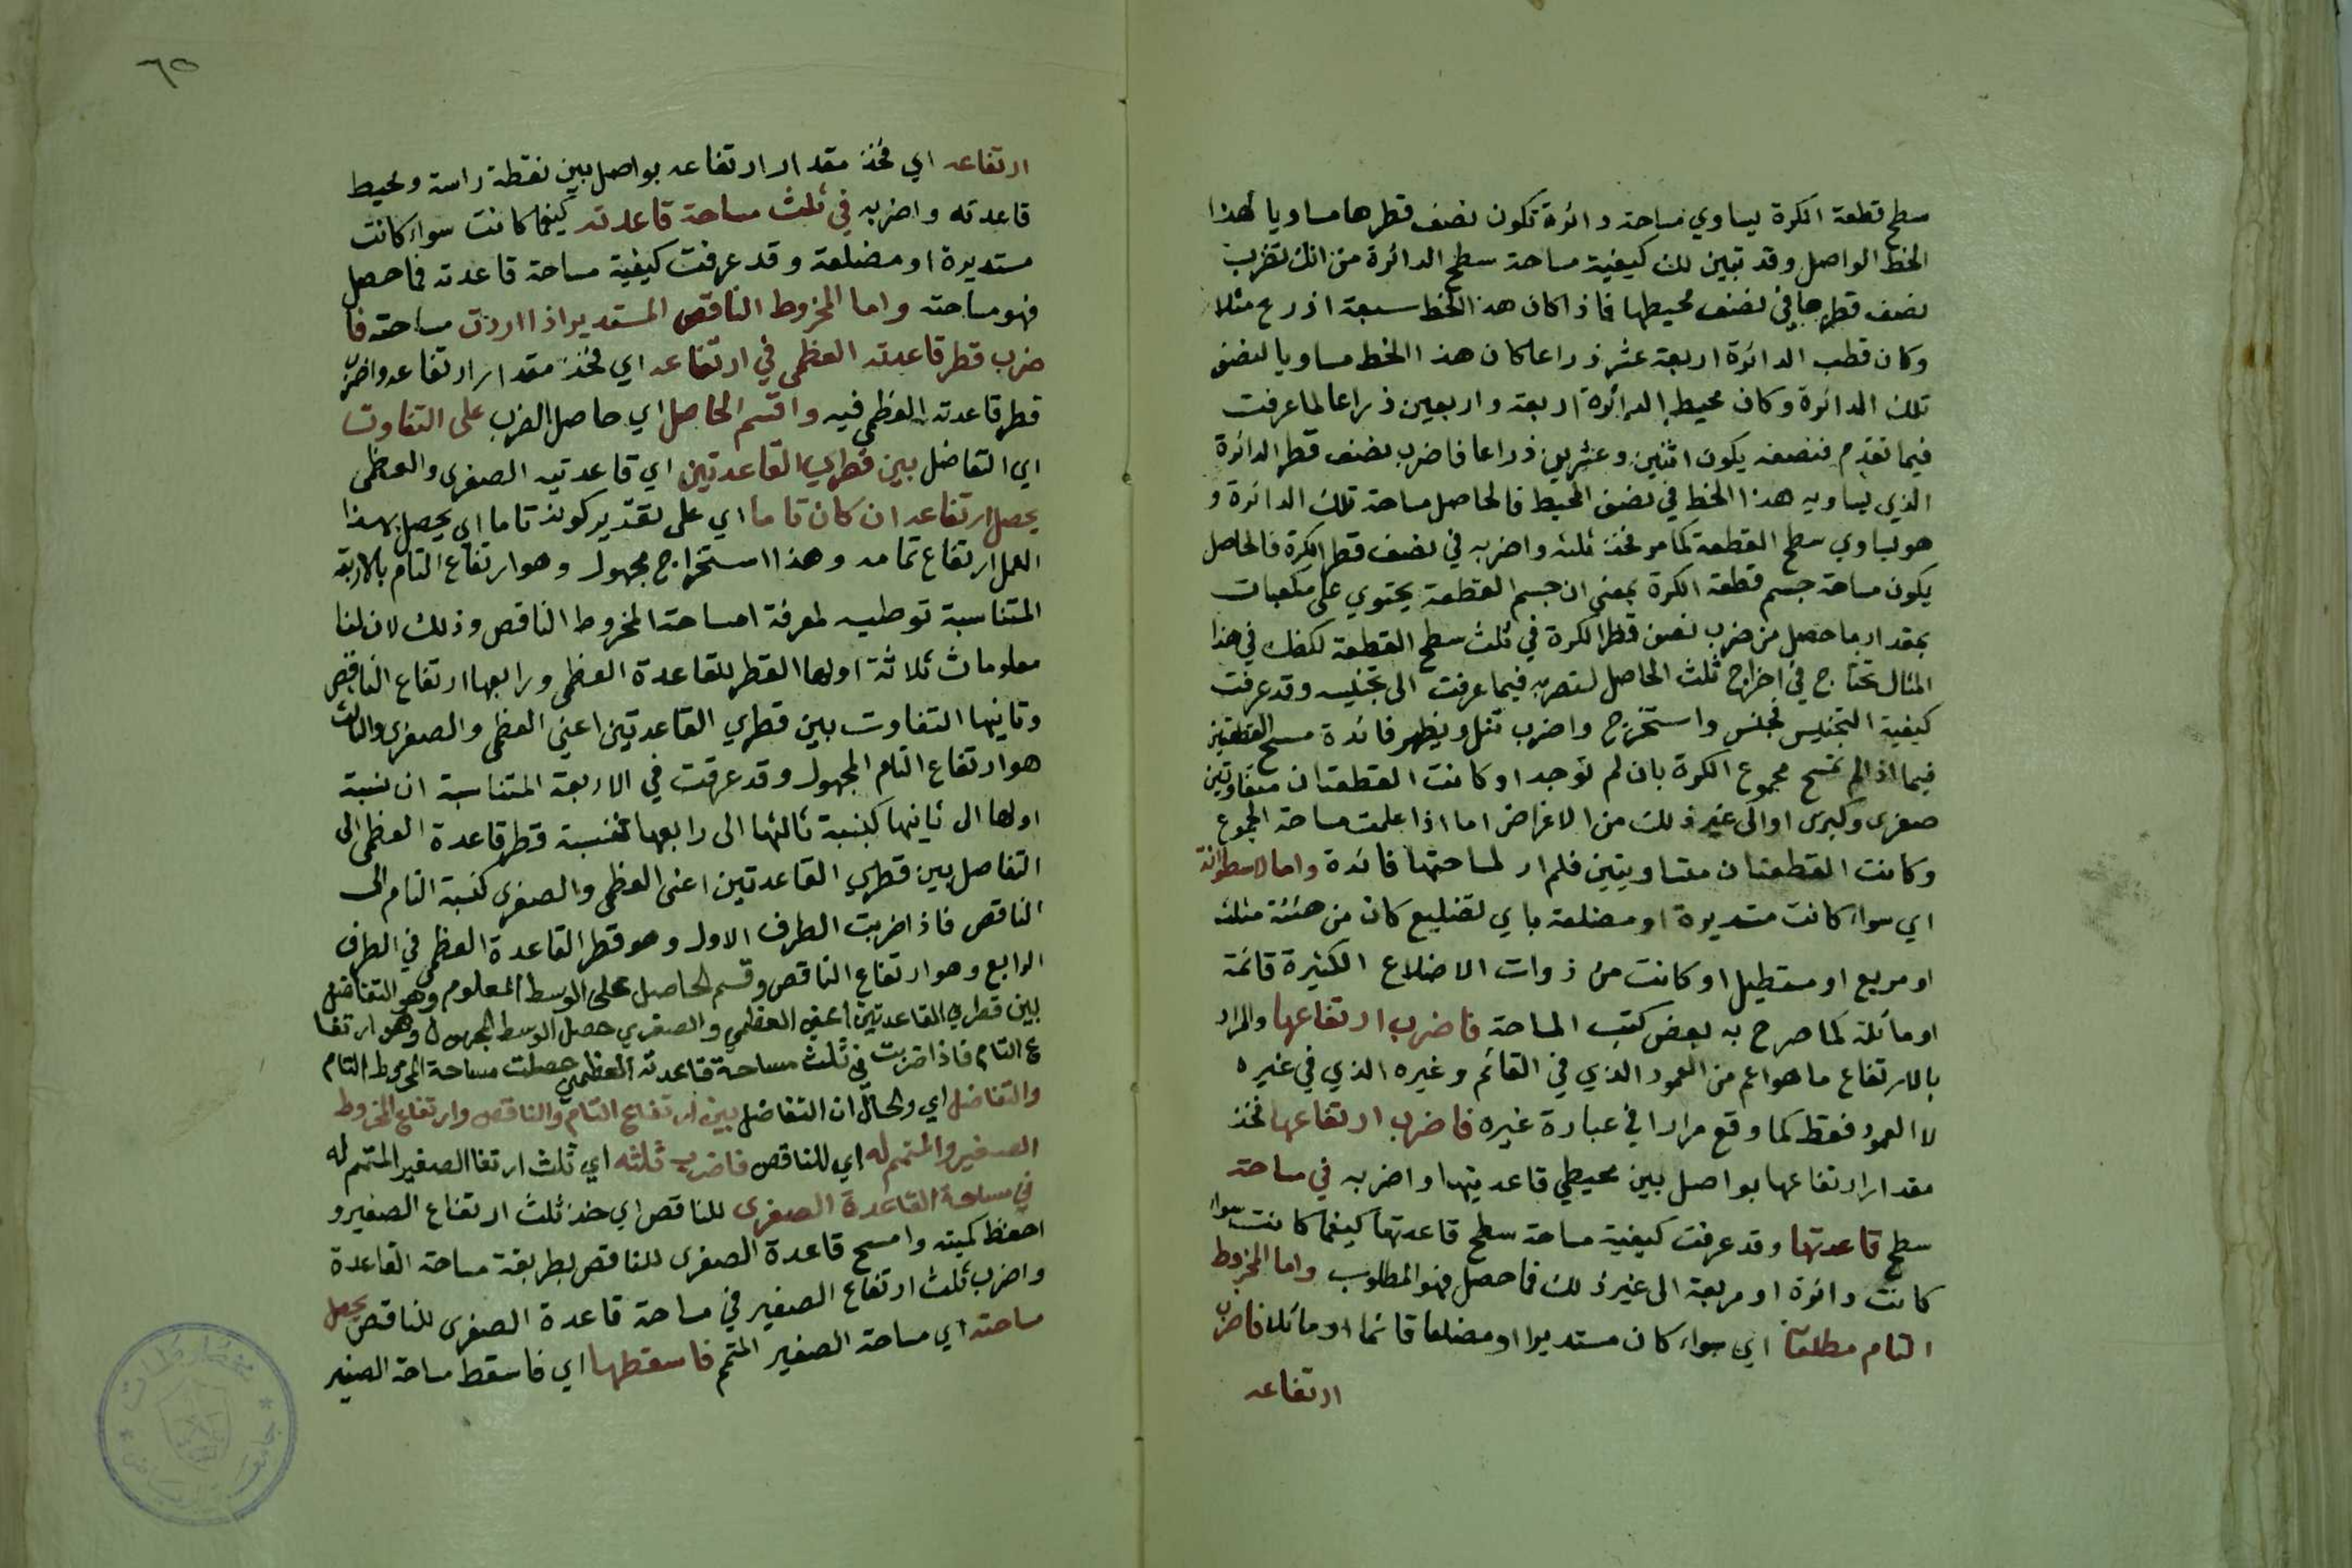 سطح قطعة الكرة يساوي مساحة دائرة تكون نصف قطرها مساويا لهذا
الخط الواصل وقد تبين لك كيفية مساحة سطح الدائرة من انك تضرب
نصف قطرها في نصف محيطها فاذا كان هذا الخط سبعة اذرع مثلا
وكان قطب الدائرة اربعة عشر ذراعا كان هذا الخط مساويا لنصف
تلك الدائرة وكان محيط الدائرة اربعة واربعين ذراعا لما عرفت
فيما تقدم فنصفه يكون اثنين وعشرين ذراعا فاضرب نصف قطر الدائرة
الذي يساويه هذا الخط في نصف المحيط فالحاصل مساحة تلك الدائرة و
هو يساوي سطح القطعة كما مر فخذ ثلثه واضربه في نصف قطر الكرة فالحاصل
يكون مساحة جسم قطعة الكرة بمعنى ان جسم القطعة يحتوي على مكعبات
بمقدار ما حصل من ضرب نصف قطر الكرة في ثلث سطح القطعة لكنك في هذا
المثال تحتاج في اخراج ثلث الحاصل لتضربه فيما عرفت الى تجنيسه وقد عرفت
كيفية التجنيس فجنس واستخرج واضرب تنل ويظهر فائدة مسح القطعتين
فيما اذا لم تمسح مجموع الكرة بان لم توجد او كانت القطعتان متفاوتين
صغرى وكبرى او الى غير ذلك من الاغراض اما اذا علمت مساحة المجموع
وكانت القطعتان متساويتين فلم ار لمساحتها فائدة واما الاسطوانة
اي سواء كانت مستديرة او مضلعة باي تضليع كان من هيئة مثلثه
او مربع او مستطيل او كانت من ذوات الاضلاع الكثيرة قائمة
او مائلة كما صرح به بعض كتب المساحة فاضرب ارتفاعها والمراد
بالارتفاع ما هو اعم من العمود الذي في القائم وغيره الذي في غيره
لا العمود فقط كما وقع مرادا في عبارة غيره فاضرب ارتفاعها فخذ
مقدار ارتفاعها بواصل بين محيطي قاعدتيها واضربه في مساحة
سطح قاعدتها وقد عرفت كيفية مساحة سطح قاعدتها كيفما كانت سواء
كانت دائرة او مربعة الى غير ذلك فما حصل فهو المطلوب واما المخروط
التام مطلقا اي سواء كان مستديرا او مضلعا قائما او مائلا فاضرب
ارتفاعه
٦٥
ارتفاعه اي فخذ مقدار ارتفاعه بواصل بين نقطة راسه ومحيط
قاعدته واضربه في ثلث مساحة قاعدته كيفما كانت سواء كانت
مستديرة او مضلعة وقد عرفت كيفية مساحة قاعدته فما حصل
فهو مساحته واما المخروط الناقص المستدير اذا اردت مساحته فا
ضرب قطر قاعدته العظمى في ارتفاعه اي فخذ مقدار ارتفاعه واضرب
قطر قاعدته العظمى فيه واقسم الحاصل اي حاصل الضرب على التفاوت
اي التفاضل بين قطري القاعدتين اي قاعدتيه الصغرى والعظمى
يحصل ارتفاعه ان كان تاما اي على تقدير كونه تاما اي يحصل بهذا
العمل ارتفاع تمامه وهذا استخراج مجهول وهو ارتفاع التام بالاربعة
المتناسبة توطيه لمعرفة امساحة المخروط الناقص وذلك لان لنا
معلومات ثلاثة اولها القطر للقاعدة العظمى ورابعها ارتفاع الناقص
وثانيها التفاوت بين قطري القاعدتين اعني العظمى والصغرى والثالث
هو ارتفاع التام المجهول وقد عرفت في الاربعة المتناسبة ان نسبة
اولها الى ثانيها كنسبة ثالثها الى رابعها فنسبة قطر قاعدة العظمى الى
التفاصل بين قطري القاعدتين اعني العظمى والصغرى كنسبة التام الى
الناقص فاذا ضربت الطرف الاول وهو قطر القاعدة العظمى في الطرف
الرابع وهو ارتفاع الناقص وقسم الحاصل على الوسط المعلوم وهو التفاضل
بين قطري القاعدتين اعني العظمي والصغري حصل الوسط المجهول وهو ارتفا
ع التام فاذا ضربت في ثلث مساحة قاعدته العظمي حصلت مساحة المخروط التام
والتفاضل اي والحال ان التفاضل بين ارتفاع التام والناقص وارتفاع المخروط
الصغير والمتمم له اي للناقص فاضرب ثلثه اي ثلث ارتفا الصغير المتمم له
في مساحة القاعدة الصغرى للناقص اي خذ ثلث ارتفاع الصغير و
احفظ كميته وامسح قاعدة الصغرى للناقص بطريقة مساحة القاعدة
واضرب ثلث ارتفاع الصغير في مساحة قاعدة الصغرى للناقص يحصل
مساحته اي مساحة الصغير المتمم فاسقطها اي فاسقط مساحة الصغير